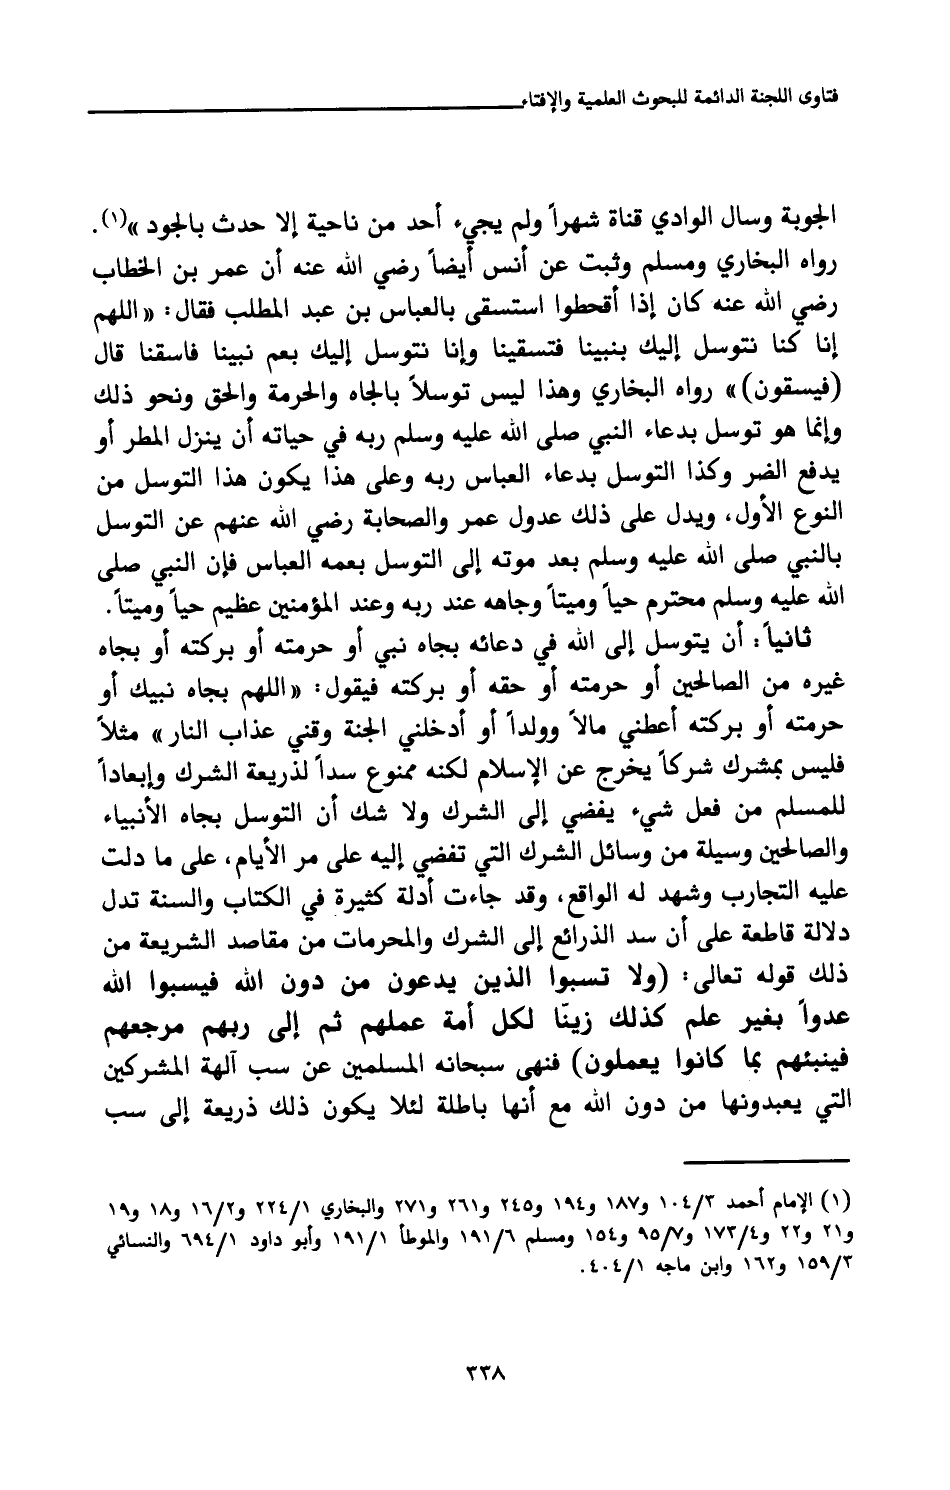 فتاوى اللجنة الدائمة للبحوث العلمية والإفتاء
الجوبة وسال الوادي قناة شهراً ولم يجيء أحد من ناحية إلا حدث بالجود »(١).
رواه البخاري ومسلم وثبت عن أنس أيضاً رضي الله عنه أن عمر بن الخطاب
رضي الله عنه كان إذا أقحطوا استسقى بالعباس بن عبد المطلب فقال: « اللهم
إنا كنا نتوسل إليك بنبينا فتسقينا وإنا نتوسل إليك بعم نبينا فاسقنا قال
(فيسقون)» رواه البخاري وهذا ليس توسلاً بالجاه والحرمة والحق ونحو ذلك
وإنما هو توسل بدعاء النبي صلى الله عليه وسلم ربه في حياته أن ينزل المطر أو
يدفع الضر وكذا التوسل بدعاء العباس ربه وعلى هذا يكون هذا التوسل من
النوع الأول، ويدل على ذلك عدول عمر والصحابة رضي الله عنهم عن التوسل
بالنبي صلى الله عليه وسلم بعد موته إلى التوسل بعمه العباس فإن النبي صلى
الله عليه وسلم محترم حياً وميتاً وجاهه عند ربه وعند المؤمنين عظيم حياً وميتاً.
ثانياً: أن يتوسل إلى الله في دعائه بجاه نبي أو حرمته أو بركته أو بجاه
غيره من الصالحين أو حرمته أو حقه أو بركته فيقول: «اللهم بجاه نبيك أو
حرمته أو بركته أعطني مالاً وولداً أو أدخلني الجنة وقني عذاب النار» مثلاً
فليس بمشرك شركاً يخرج عن الإسلام لكنه ممنوع سداً لذريعة الشرك وإبعاداً
للمسلم من فعل شيء يفضي إلى الشرك ولا شك أن التوسل بجاه الأنبياء
والصالحين وسيلة من وسائل الشرك التي تفضي إليه على مر الأيام، على ما دلت
عليه التجارب وشهد له الواقع، وقد جاءت أدلة كثيرة في الكتاب والسنة تدل
دلالة قاطعة على أن سد الذرائع إلى الشرك والمحرمات من مقاصد الشريعة من
ذلك قوله تعالى: (ولا تسبوا الذين يدعون من دون الله فيسبوا الله
عدواً بغير علم كذلك زيّنا لكل أمة عملهم ثم إلى ربهم مرجعهم
فينبئهم بما كانوا يعملون) فنهى سبحانه المسلمين عن سب آلهة المشركين
التي يعبدونها من دون الله مع أنها باطلة لئلا يكون ذلك ذريعة إلى سب
(١) الإمام أحمد ١٠٤/٣ و١٨٧ و١٩٤ و٢٤٥ و٢٦١ و٢٧١ والبخاري ٢٢٤/١ و١٦/٢ و١٨ و١٩
و٢١ و٢٢ و١٧٣/٤ و٩٥/٧ و١٥٤ ومسلم ١٩١/٦ والموطأ ١٩١/١ وأبو داود ٦٩٤/١ والنسائي
١٥٩/٣ و١٦٢ وابن ماجه ٤٠٤/١.
٣٣٨